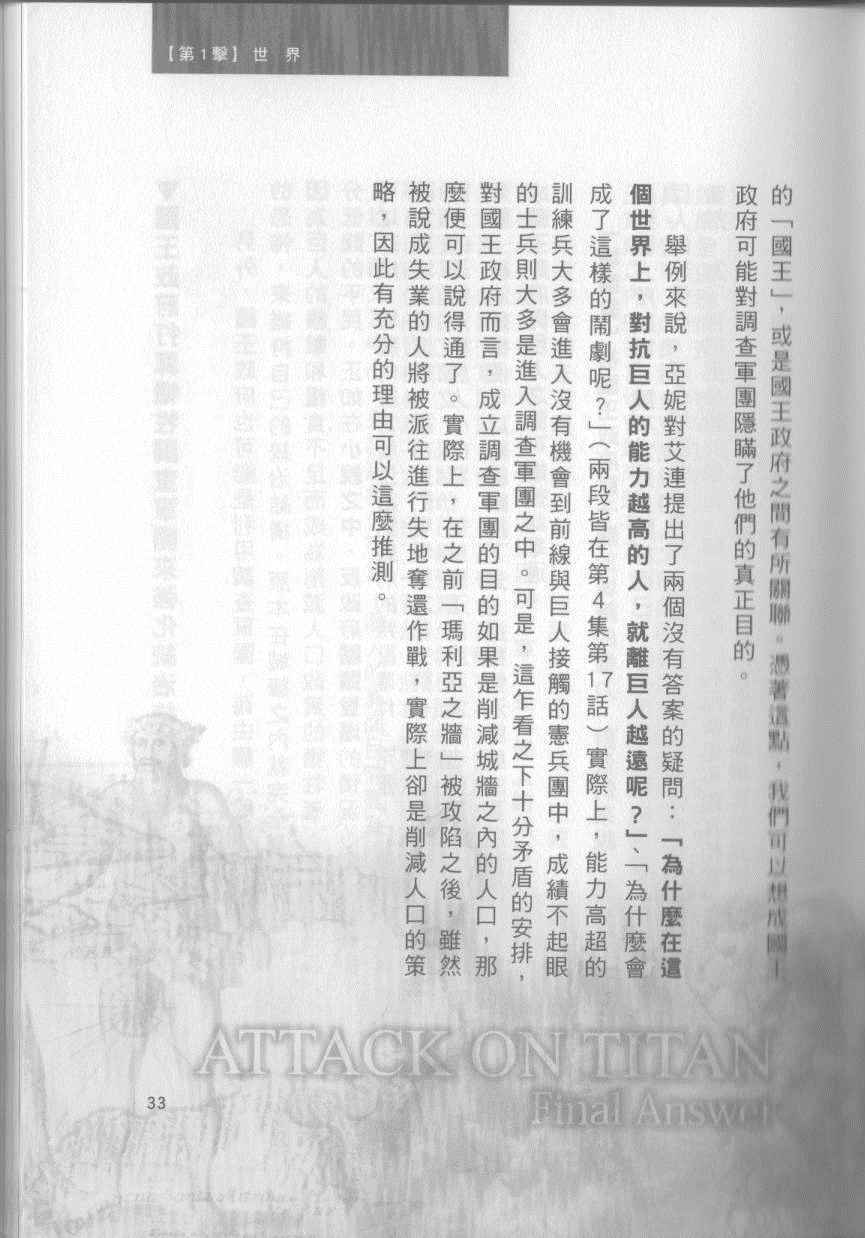 【第1擊】世 界
的「國王」，或是國王政府之間有所關聯。憑著這點，我們可以想成國王
政府可能對調查軍團隱瞞了他們的真正目的。
舉例來說，亞妮對艾連提出了兩個沒有答案的疑問：「為什麼在這
個世界上，對抗巨人的能力越高的人，就離巨人越遠呢？」、「為什麼會
成了這樣的鬧劇呢？」（兩段皆在第4集第17話）實際上，能力高超的
訓練兵大多會進入沒有機會到前線與巨人接觸的憲兵團中，成績不起眼
的士兵則大多是進入調查軍團之中。可是，這乍看之下十分矛盾的安排，
對國王政府而言，成立調查軍團的目的如果是削減城牆之內的人口，那
麼便可以說得通了。實際上，在之前「瑪利亞之牆」被攻陷之後，雖然
被說成失業的人將被派往進行失地奪還作戰，實際上卻是削減人口的策
略，因此有充分的理由可以這麼推測。
ATTACK ON TITAN
Final Answer
33